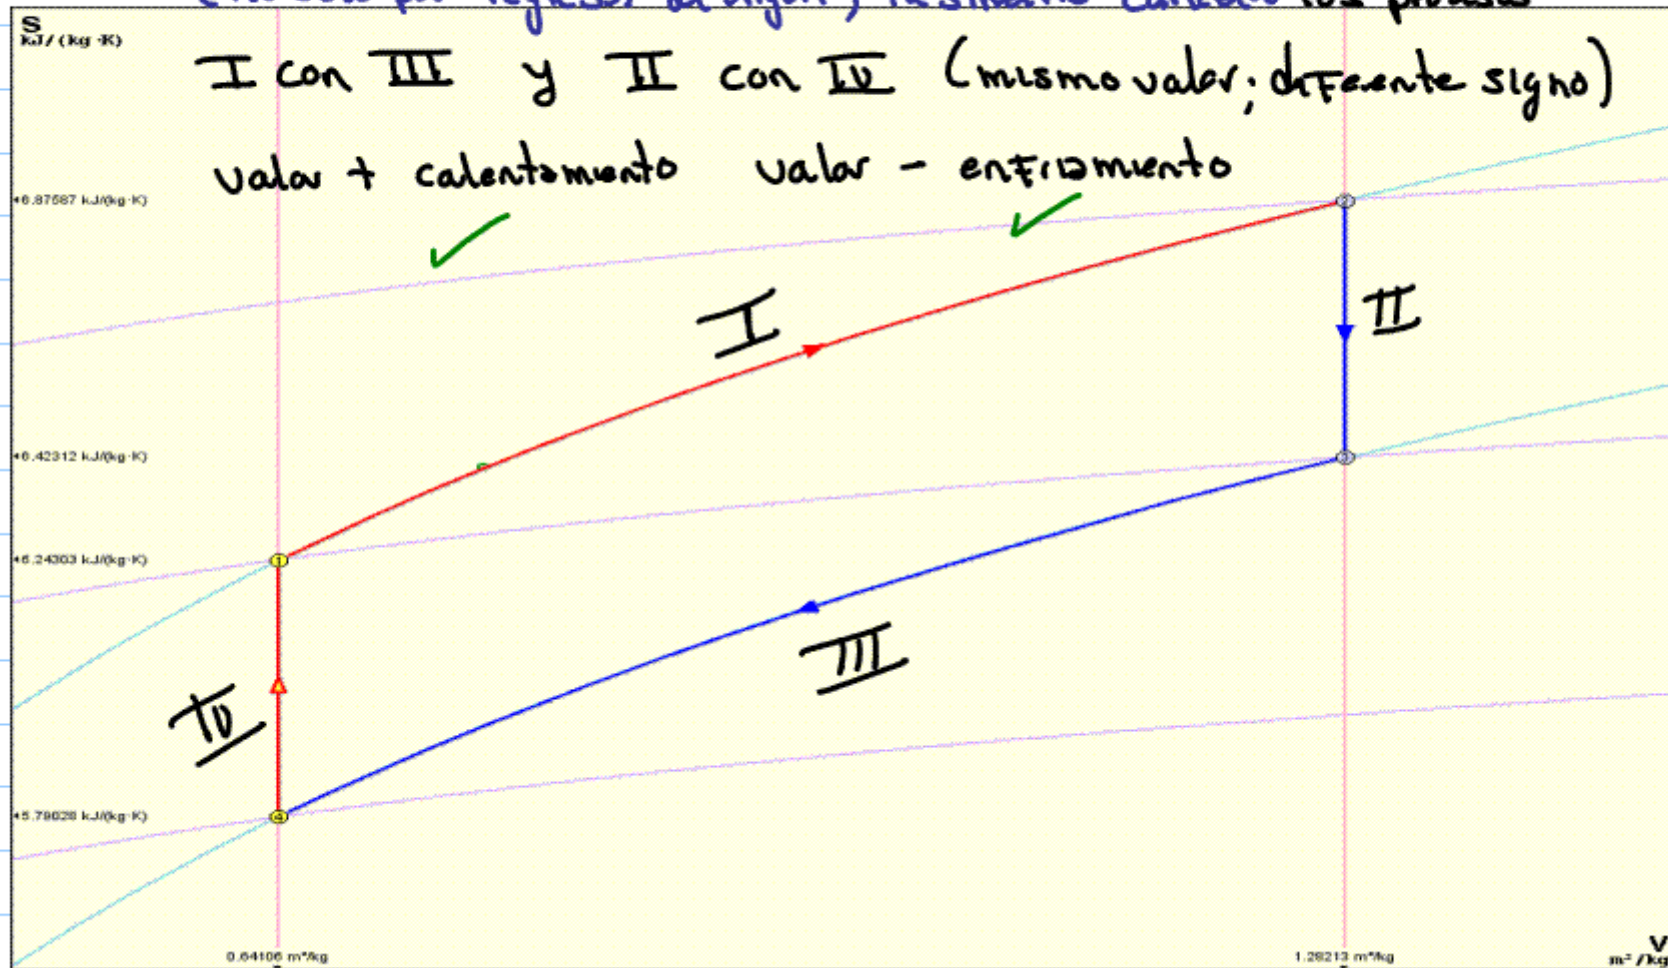 S
kJ/(kg·K)
I con III y II con IV (mismo valor; diferente signo)
valor + calentamiento valor - enfriamiento
+6.87587 kJ/(kg·K)
2
I
II
+6.42312 kJ/(kg·K)
3
+6.24303 kJ/(kg·K)
1
III
IV
+5.79028 kJ/(kg·K)
4
0.64106 m³/kg
1.28213 m³/kg
V
m³/kg